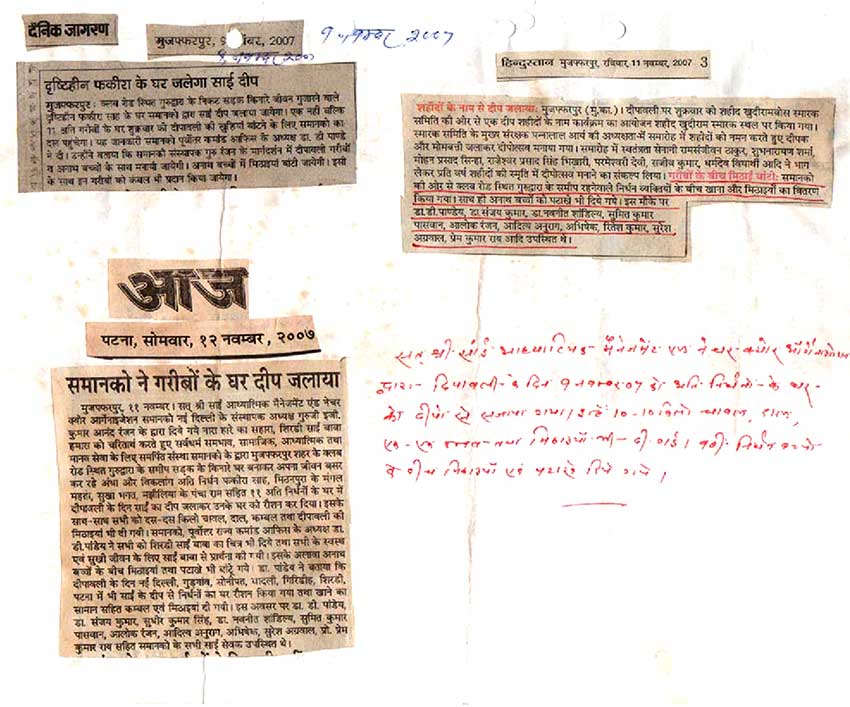 दैनिक जागरण
मुजफ्फरपुर, 9 नवंबर, 2007
9 नवम्बर 2007
9 नवम्बर 2007
दृष्टिहीन फकीरा के घर जलेगा साई दीप
मुजफ्फरपुर : क्लब रोड स्थित गुरुद्वारा के निकट सड़क किनारे जीवन गुजारने वाले
दृष्टिहीन फकीरा साह के घर समानको द्वारा साई दीप जलाया जायेगा। एक नहीं बल्कि
11 अति गरीबों के घर शुक्रवार को दीपावली की खुशियां बांटने के लिए समानको का
दल पहुंचेगा। यह जानकारी समानको पूर्वोत्तर कमांड आफिस के अध्यक्ष डा. डी पाण्डे
ने दी। उन्होंने बताया कि समानको संस्थापक गुरु रंजन के मार्गदर्शन में दीपावली गरीबों
व अनाथ बच्चों के साथ मनायी जायेगी। अनाथ बच्चों में मिठाइयां बांटी जायेगी। इसी
के साथ इन गरीबों को कंबल भी प्रदान किया जायेगा।
हिन्दुस्तान मुजफ्फरपुर, रविवार, 11 नवम्बर, 2007 3
शहीदों के नाम से दीप जलाया: मुजफ्फरपुर (मु.का.)। दीपावली पर शुक्रवार को शहीद खुदीरामबोस स्मारक
समिति की ओर से एक दीप शहीदों के नाम कार्यक्रम का आयोजन शहीद खुदीराम स्मारक स्थल पर किया गया।
स्मारक समिति के मुख्य संरक्षक पन्नालाल आर्य की अध्यक्षता में समारोह में शहीदों को नमन करते हुए दीपक
और मोमबत्ती जलाकर दीपोत्सव मनाया गया। समारोह में स्वतंत्रता सेनानी रामसंजीवन ठाकुर, शुभनारायण शर्मा,
मोहन प्रसाद सिन्हा, राजेश्वर प्रसाद सिंह भिखारी, परमेश्वरी देवी, संजीव कुमार, धर्मदेव विद्यार्थी आदि ने भाग
लेकर प्रति वर्ष शहीदों की स्मृति में दीपोत्सव मनाने का संकल्प लिया। गरीबों के बीच मिठाई बांटी: समानको
की ओर से क्लब रोड स्थित गुरुद्वारा के समीप रहनेवाले निर्धन व्यक्तियों के बीच खाना और मिठाइयों का वितरण
किया गया। साथ ही अनाथ बच्चों को पटाखे भी दिये गये। इस मौके पर
डा.डी.पाण्डेय, डा.संजय कुमार, डा.नवनीत शांडिल्य, सुमित कुमार
पासवान, आलोक रंजन, आदित्य अनुराग, अभिषेक, रितेश कुमार, सुरेश
अग्रवाल, प्रेम कुमार राय आदि उपस्थित थे।
आज
पटना, सोमवार, १२ नवम्बर, २००७
समानको ने गरीबों के घर दीप जलाया
मुजफ्फरपुर, ११ नवम्बर। सत् श्री साई आध्यात्मिक मैनेजमेंट एंड नेचर
क्योर आर्गेनाइजेशन समानको नई दिल्ली के संस्थापक अध्यक्ष गुरुजी इंजी.
कुमार आनंद रंजन के द्वारा दिये गये नारा हारे का सहारा, शिरडी साई बाबा
हमारा को चरितार्थ करते हुए सर्वधर्म समभाव, सामाजिक, आध्यात्मिक तथा
मानव सेवा के लिए समर्पित संस्था समानको के द्वारा मुजफ्फरपुर शहर के क्लब
रोड स्थित गुरुद्वारा के समीप सड़क के किनारे घर बनाकर अपना जीवन बसर
कर रहे अंधा और विकलांग अति निर्धन फकीरा साह, मिठनपुरा के मंगल
महतो, सुखा भगत, मझौलिया के पंचा राम सहित ११ अति निर्धनों के घर में
दीपावली के दिन साई का दीप जलाकर उनके घर को रौशन कर दिया। इसके
साथ-साथ सभी को दस-दस किलो चावल, दाल, कम्बल तथा दीपावली की
मिठाइयां भी दी गयी। समानको, पूर्वोत्तर राज्य कमांड आफिस के अध्यक्ष डा.
डी.पांडेय ने सभी को शिरडी साई बाबा का चित्र भी दिये तथा सभी के स्वस्थ
एवं सुखी जीवन के लिए साई बाबा से प्रार्थना की गयी। इसके अलावा अनाथ
बच्चों के बीच मिठाइयां तथा पटाखे भी बांटे गये। डा. पांडेय ने बताया कि
दीपावली के दिन नई दिल्ली, गुड़गांव, सोनीपत, धादली, गिरिडीह, शिरडी,
पटना में भी साई के दीप से निर्धनों का घर रौशन किया गया तथा खाने का
सामान सहित कम्बल एवं मिठाइयां दी गयी। इस अवसर पर डा. डी. पांडेय,
डा. संजय कुमार, सुधीर कुमार सिंह, डा. नवनीत शांडिल्य, सुमित कुमार
पासवान, आलोक रंजन, आदित्य अनुराग, अभिषेक, सुरेश अग्रवाल, प्रो. प्रेम
कुमार राय सहित समानको के सभी साई सेवक उपस्थित थे।
सत् श्री साई आध्यात्मिक मैनेजमेंट एण्ड नेचर क्योर ऑर्गेनाइजेशन
द्वारा दिपावली के दिन 9 नवम्बर 07 को अति निर्धनों के घर
को दीपों से सजाया गया। इन्हें 10-10 किलो चावल, दाल,
एक-एक कम्बल तथा मिठाइयाँ भी दी गई। वहीं निर्धन बच्चों
के बीच मिठाइयाँ एवं पटाखे दिये गये।